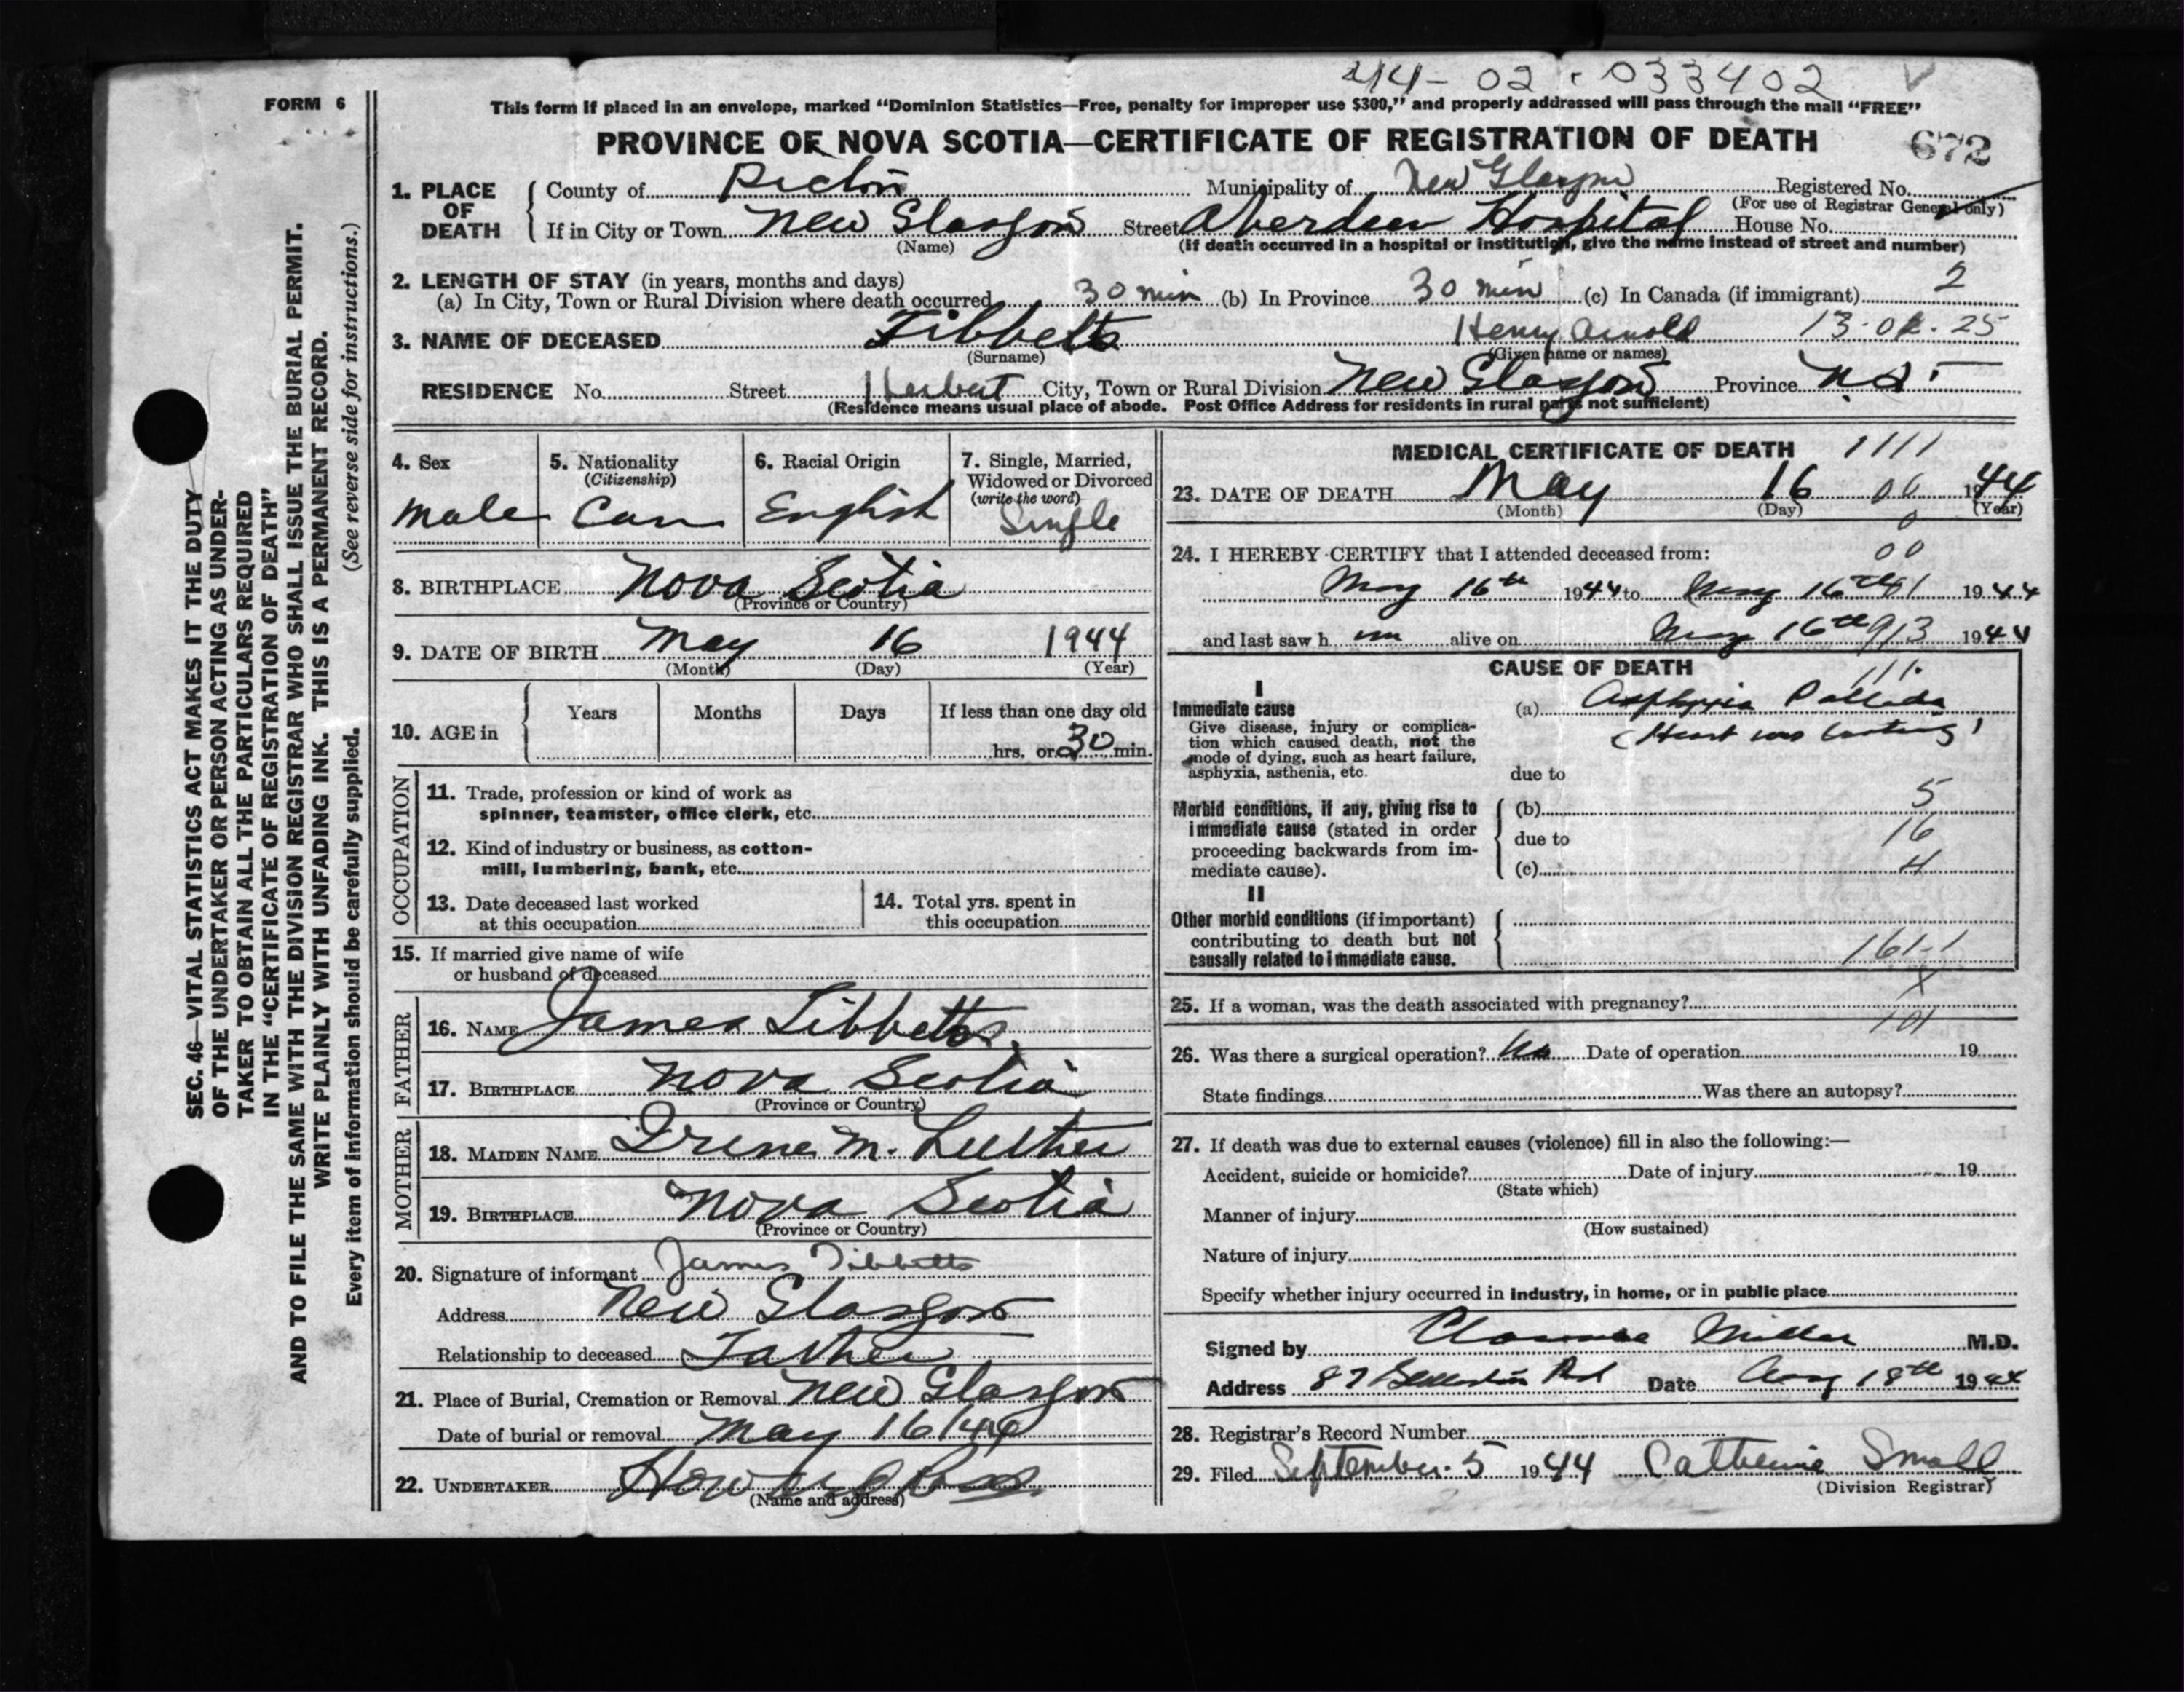 44-02-033402
FORM 6
This form if placed in an envelope, marked "Dominion Statistics—Free, penalty for improper use $300," and properly addressed will pass through the mail "FREE"
PROVINCE OF NOVA SCOTIA—CERTIFICATE OF REGISTRATION OF DEATH 672
1. PLACE OF DEATH
County of Pictou Municipality of New Glasgow Registered No.
(For use of Registrar General only)
If in City or Town New Glasgow Street Aberdeen Hospital House No.
(Name) (if death occurred in a hospital or institution, give the name instead of street and number)
2. LENGTH OF STAY (in years, months and days) 2
(a) In City, Town or Rural Division where death occurred 30 min (b) In Province 30 min (c) In Canada (if immigrant)
3. NAME OF DECEASED Tibbetts Henry Arnold
(Surname) (Given name or names)
RESIDENCE No. Street Herbert City, Town or Rural Division New Glasgow Province N.S.
(Residence means usual place of abode. Post Office Address for residents in rural parts not sufficient)
4. Sex
male
5. Nationality
(Citizenship)
Can
6. Racial Origin
English
7. Single, Married,
Widowed or Divorced
(write the word)
Single
8. BIRTHPLACE Nova Scotia
(Province or Country)
9. DATE OF BIRTH May 16 1944
(Month) (Day) (Year)
10. AGE in Years Months Days If less than one day old
hrs. or 30 min.
OCCUPATION
11. Trade, profession or kind of work as
spinner, teamster, office clerk, etc.
12. Kind of industry or business, as cotton-
mill, lumbering, bank, etc.
13. Date deceased last worked
at this occupation
14. Total yrs. spent in
this occupation
15. If married give name of wife
or husband of deceased
FATHER
16. NAME James Tibbetts.
17. BIRTHPLACE Nova Scotia
(Province or Country)
MOTHER
18. MAIDEN NAME Irene M. Luther
19. BIRTHPLACE Nova Scotia
(Province or Country)
20. Signature of informant James Tibbetts
Address New Glasgow
Relationship to deceased Father
21. Place of Burial, Cremation or Removal New Glasgow
Date of burial or removal May 16/44
22. UNDERTAKER
(Name and address)
MEDICAL CERTIFICATE OF DEATH 1111
23. DATE OF DEATH May 16 00 1944
(Month) (Day) (Year)
0
24. I HEREBY CERTIFY that I attended deceased from:
00
May 16th 1944 to May 16th 1944
and last saw h im alive on May 16th 1944
CAUSE OF DEATH
111.
I
Immediate cause
Give disease, injury or complica-
tion which caused death, not the
mode of dying, such as heart failure,
asphyxia, asthenia, etc.
(a) Asphyxia Pallida
(Heart was beating)
due to
Morbid conditions, if any, giving rise to
immediate cause (stated in order
proceeding backwards from im-
mediate cause).
(b) 5
due to 16
(c) 4
II
Other morbid conditions (if important)
contributing to death but not
causally related to immediate cause.
161-1
X
25. If a woman, was the death associated with pregnancy?
101
26. Was there a surgical operation? No Date of operation 19
State findings Was there an autopsy?
27. If death was due to external causes (violence) fill in also the following:—
Accident, suicide or homicide? Date of injury 19
(State which)
Manner of injury
(How sustained)
Nature of injury
Specify whether injury occurred in industry, in home, or in public place
Signed by Clarence Miller M.D.
Address 87 Date Aug 18th 1944
28. Registrar's Record Number
29. Filed September 5 1944 Catherine Small
(Division Registrar)
SEC. 46—VITAL STATISTICS ACT MAKES IT THE DUTY
OF THE UNDERTAKER OR PERSON ACTING AS UNDER-
TAKER TO OBTAIN ALL THE PARTICULARS REQUIRED
IN THE "CERTIFICATE OF REGISTRATION OF DEATH"
AND TO FILE THE SAME WITH THE DIVISION REGISTRAR WHO SHALL ISSUE THE BURIAL PERMIT.
WRITE PLAINLY WITH UNFADING INK. THIS IS A PERMANENT RECORD.
Every item of information should be carefully supplied. (See reverse side for instructions.)